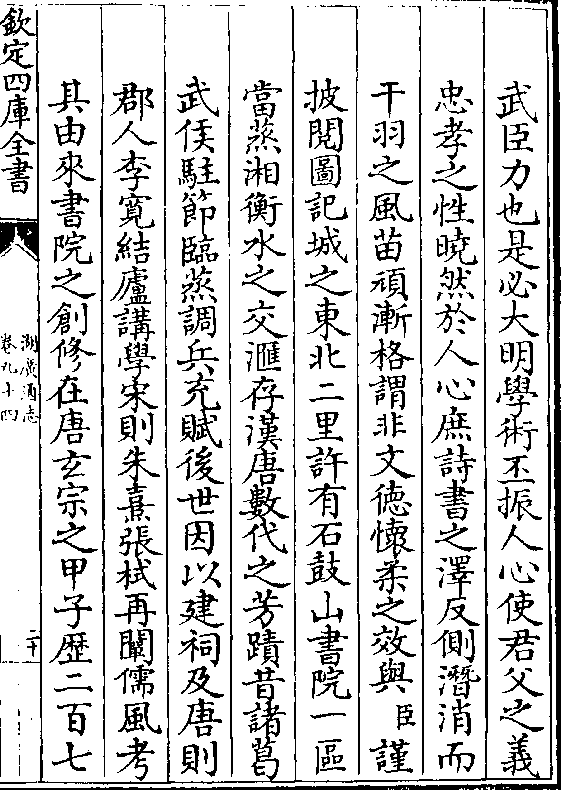 武臣力也是必大明學術丕振人心使君父之義
忠孝之性曉然於人心庶詩書之澤反側潛消而
干羽之風苗頑漸格謂非文徳懷柔之效與臣謹
披閱圖記城之東北二里許有石鼓山書院一區
當蒸湘衡水之交滙存漢唐數代之芳蹟昔諸葛
武侯駐節臨蒸調兵充賦後世因以建祠及唐則
郡人李寛結廬講學宋則朱熹張栻再闡儒風考
其由來書院之創修在唐玄宗之甲子歴二百七
欽定四庫全書
湖廣通志
卷九十四
二十